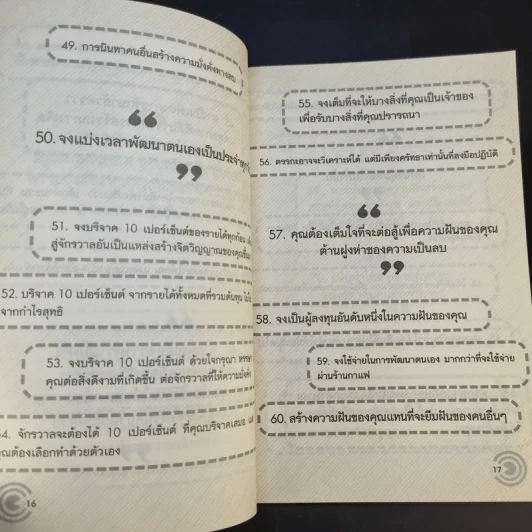 49. การนินทาคนอื่นสร้างความมั่งคั่งทางลบ
50. จงแบ่งเวลาพัฒนาตนเองเป็นประจำทุก
51. จงบริจาค 10 เปอร์เซ็นต์ของรายได้ทุกก้อน
สู่จักรวาลอันเป็นแหล่งสร้างจิตวิญญาณของคุณขึ้น
52. บริจาค 10 เปอร์เซ็นต์ จากรายได้ทั้งหมดที่รวมต้นทุน
จากกำไรสุทธิ
53. จงบริจาค 10 เปอร์เซ็นต์ ด้วยใจกรุณา
คุณต่อสิ่งดีงามที่เกิดขึ้น ต่อจักรวาลที่ให้ความมั่งคั่ง
54. จักรวาลจะต้องได้ 10 เปอร์เซ็นต์ ที่คุณบริจาคเสมอ
คุณต้องเลือกทำด้วยตัวเอง
16
55. จงเต็มที่จะให้บางสิ่งที่คุณเป็นเจ้าของ
เพื่อรับบางสิ่งที่คุณปรารถนา
56. ตรรกะอาจจะวิเคราะห์ได้ แต่มีเพียงศรัทธาเท่านั้นที่ลงมือปฏิบัติ
57. คุณต้องเต็มใจที่จะต่อสู้เพื่อความฝันของคุณ
ต้านฝูงห่าของความเป็นลบ
58. จงเป็นผู้ลงทุนอันดับหนึ่งในความฝันของคุณ
59. จงใช้จ่ายในการพัฒนาตนเอง มากกว่าที่จะใช้จ่าย
ผ่านร้านกาแฟ
60. สร้างความฝันของคุณแทนที่จะยืมฝันของคนอื่นๆ
17